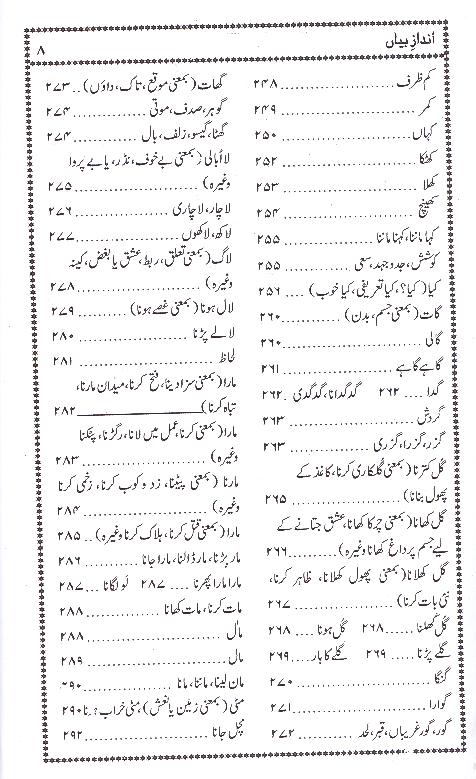 اندازِ بیاں ۸
کم ظرف ۲۴۸
کمر ۲۴۹
کہاں ۲۵۰
کھٹکا ۲۵۲
کھلا ۲۵۳
کھینچ ۲۵۴
کہا ماننا، کہنا ماننا ۲۵۵
کوشش، جدوجہد، سعی ۲۵۵
کیا (کیا؟، کیا تعریفی، کیا خوب) ۲۵۶
گات (بمعنی جسم، بدن) ۲۶۰
گالی ۲۶۰
گاہے گاہے ۲۶۱
گدا ۲۶۲ گدگدانا، گدگدی ۲۶۲
گردش ۲۶۳
گزر، گزرا، گزری ۲۶۳
گل کترنا (بمعنی گلکاری کرنا، کاغذ کے
پھول بنانا) ۲۶۵
گل کھانا (بمعنی چرکا کھانا، عشق جتانے کے
لیے جسم پر داغ کھانا وغیرہ) ۲۶۶
گل کھلانا (بمعنی پھول کھلانا، ظاہر کرنا،
نئی بات کرنا) ۲۶۷
گل کھلنا ۲۶۸ گل ہونا ۲۶۸
گلے پڑنا ۲۶۹ گلے کا ہار ۲۶۹
گنگا ۲۷۰
گوارا ۲۷۱
گور، گورِ غریباں، قبر، لحد ۲۷۲
گھات (بمعنی موقع، تاک، داؤں) ۲۷۳
گوہر، صدف، موتی ۲۷۴
گھٹا، گیسو، زلف، بال ۲۷۴
لاأبالی (بمعنی بے خوف، نڈر، یا بے پروا
وغیرہ) ۲۷۵
لاچار، لاچاری ۲۷۶
لاکھ، لاکھوں ۲۷۷
لاگ (بمعنی تعلق، ربط، عشق یا بغض، کینہ
وغیرہ) ۲۷۸
لال ہونا (بمعنی غصے ہونا) ۲۷۹
لالے پڑنا ۲۸۰
لحاظ ۲۸۱
مارا (بمعنی سزا دینا، فتح کرنا، میدان مارنا،
تباہ کرنا) ۲۸۲
مارا (بمعنی کرنا، عمل میں لانا، رگڑنا، پٹکنا
وغیرہ) ۲۸۳
مارنا (بمعنی پیٹنا، زد و کوب کرنا، زخمی کرنا
وغیرہ) ۲۸۴
مارا (بمعنی قتل کرنا، ہلاک کرنا وغیرہ) ۲۸۵
مار پڑنا، مار ڈالنا، مارا جانا ۲۸۶
مارا مارا پھرنا ۲۸۷ لو لگانا ۲۸۷
مات کرنا، مات کھانا ۲۸۸
مال ۲۸۸
مال ۲۸۹
مان لینا، ماننا، مانا ۲۹۰
مٹی (بمعنی زمین یا نعش) مٹی خراب؟ ہونا ۲۹۰
مچل جانا ۲۹۲